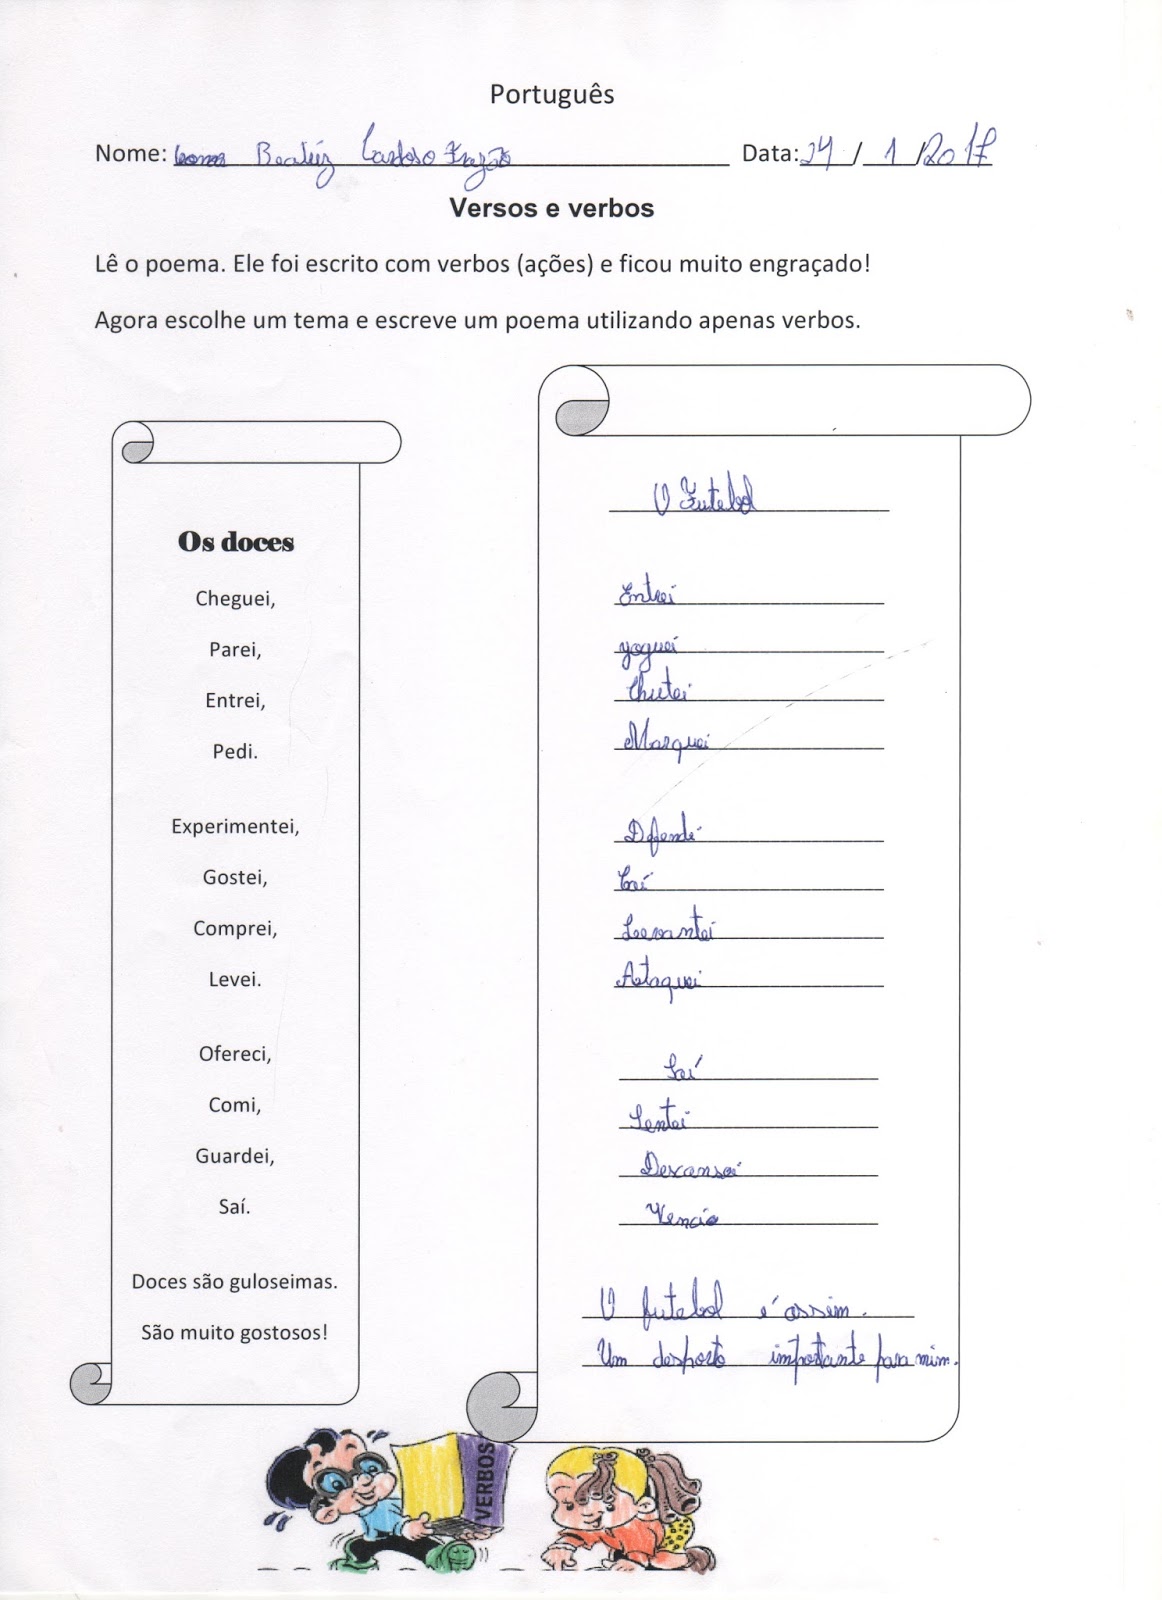 Português
Nome: Beatriz Cardoso Frazão Data: 24 / 1 /2017
Versos e verbos
Lê o poema. Ele foi escrito com verbos (ações) e ficou muito engraçado!
Agora escolhe um tema e escreve um poema utilizando apenas verbos.
Os doces
Cheguei,
Parei,
Entrei,
Pedi.
Experimentei,
Gostei,
Comprei,
Levei.
Ofereci,
Comi,
Guardei,
Saí.
Doces são guloseimas.
São muito gostosos!
O Futebol
Entrei
yoguei
Chutei
Marquei
Defendi
Caí
Levantei
Ataquei
Saí
Sentei
Descansei
O futebol é assim.
Um desporto importante para mim.
VERBOS